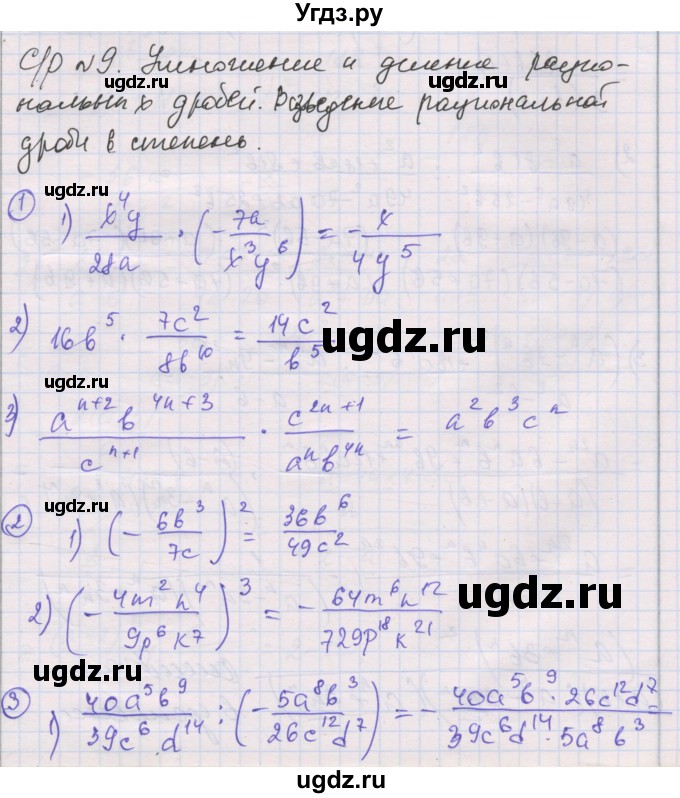 Угдз.ру
С/р №9. Умножение и деление рацио-
нальных дробей. Возведение рациональной
дроби в степень.
ugdz.ru ugdz.ru
① 1) x⁴y/28a · (-7a/x³y⁶) = -x/4y⁵
ugdz.ru ugdz.ru
2) 16b⁵ · 7c²/8b¹⁰ = 14c²/b⁵
ugdz.ru
3) aⁿ⁺²b⁴ⁿ⁺³/cⁿ⁺¹ · c²ⁿ⁺¹/aⁿb⁴ⁿ = a²b³cⁿ
ugdz.ru ugdz.ru
② 1) (-6b³/7c)² = 36b⁶/49c²
ugdz.ru
2) (-4m²n⁴/9p⁶k⁷)³ = -64m⁶n¹²/729p¹⁸k²¹
ugdz.ru ugdz.ru
③ 1) 40a⁵b⁹/39c⁶d¹⁴ : (-5a⁸b³/26c¹²d⁷) = -40a⁵b⁹·26c¹²d⁷/39c⁶d¹⁴·5a⁸b³ =
ugdz.ru ugdz.ru
Угдз.ру